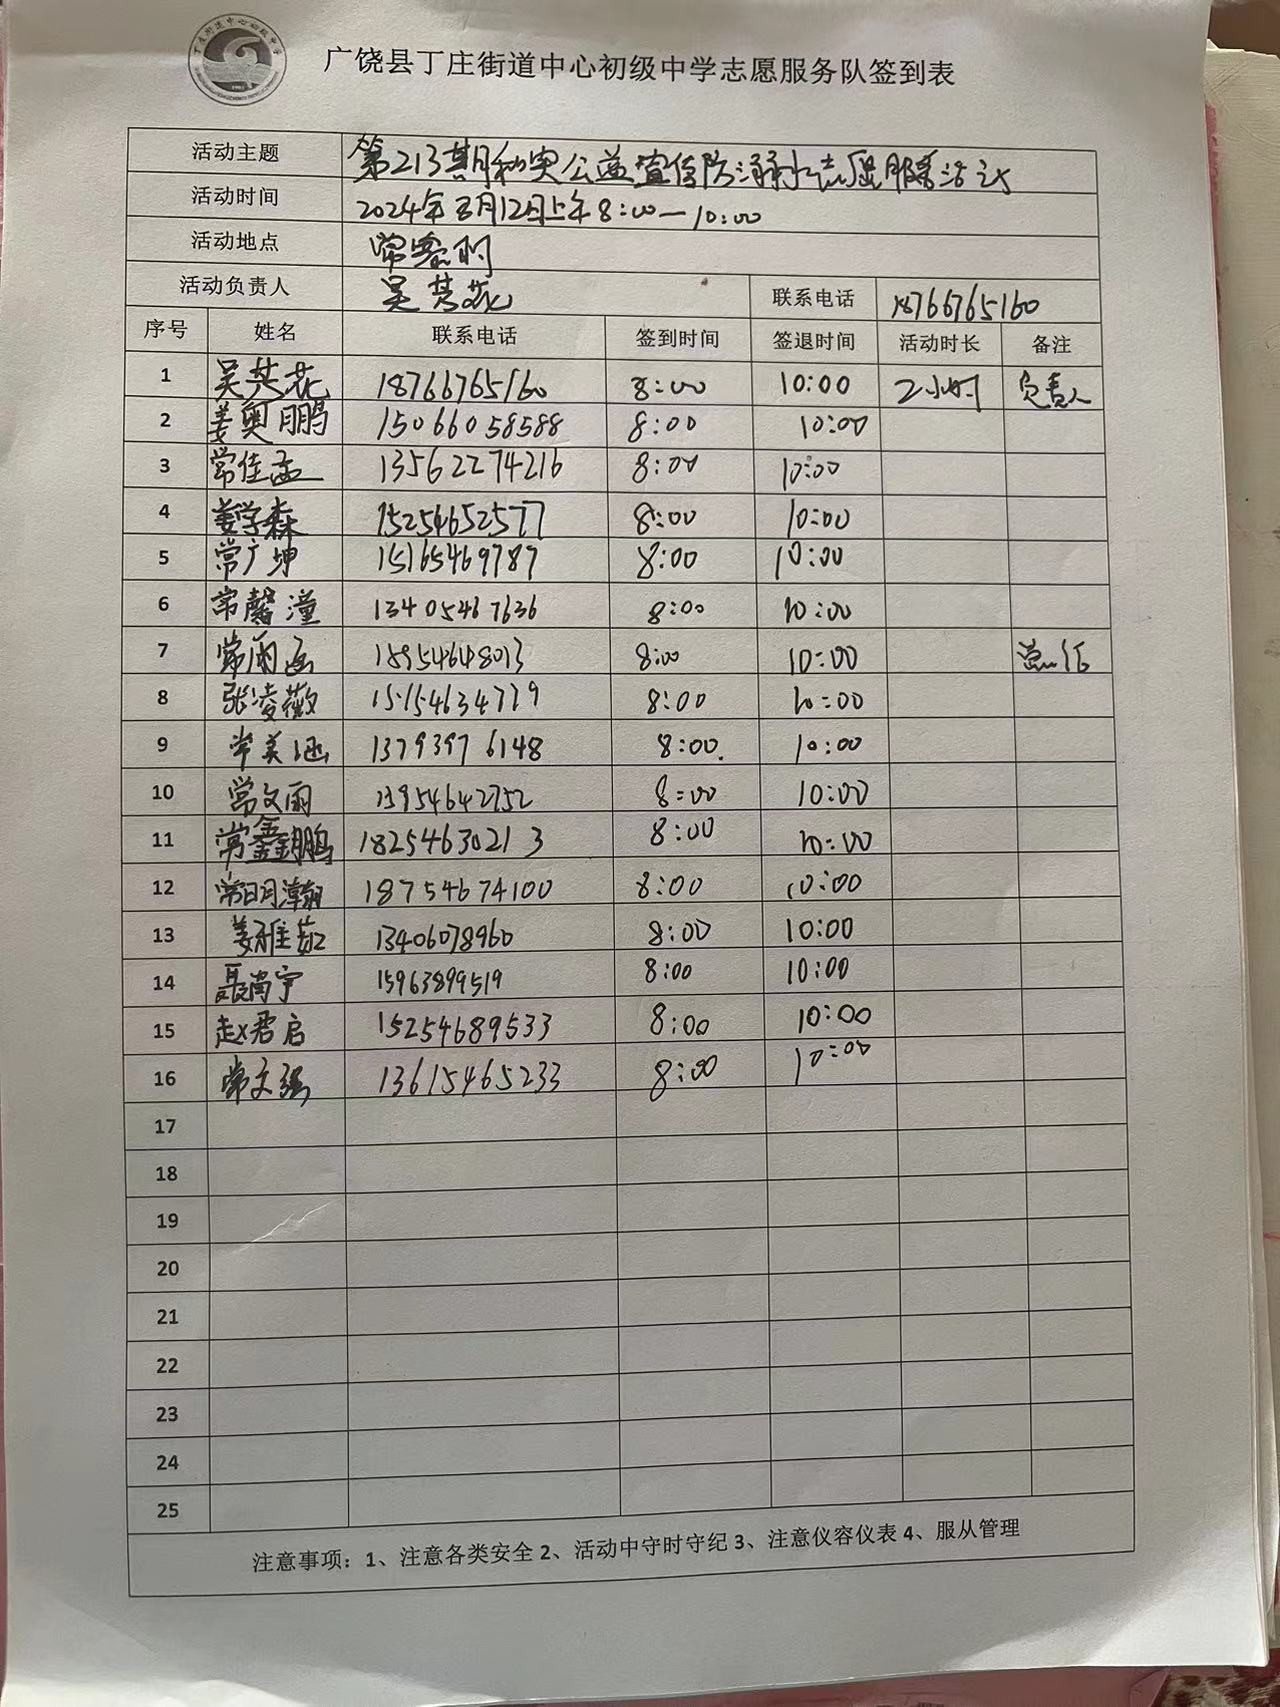 广饶县丁庄街道中心初级中学志愿服务队签到表
活动主题 第213期和奥公益宣传防溺水志愿服务活动
活动时间 2024年5月12日上午8:00—10:00
活动地点 常寨村
活动负责人 吴其花 联系电话 18766765160
序号 姓名 联系电话 签到时间 签退时间 活动时长 备注
1 吴其花 18766765160 8:00 10:00 2小时 负责人
2 姜奥鹏 15066058588 8:00 10:00
3 常佳孟 13562274216 8:00 10:00
4 姜学森 15254652577 8:00 10:00
5 常广坤 15165469787 8:00 10:00
6 常馨潼 13405467636 8:00 10:00
7 常雨函 15954648013 8:00 10:00
8 张凌薇 15154634719 8:00 10:00
9 常美涵 13793976148 8:00 10:00
10 常文雨 15954642752 8:00 10:00
11 常鑫鹏 18254630213 8:00 10:00
12 常明瀚 18754674100 8:00 10:00
13 姜雅茹 13406078960 8:00 10:00
14 聂尚宇 15963899519 8:00 10:00
15 赵君启 15254689533 8:00 10:00
16 常文强 13615465233 8:00 10:00
17
18
19
20
21
22
23
24
25
注意事项：1、注意各类安全 2、活动中守时守纪 3、注意仪容仪表 4、服从管理